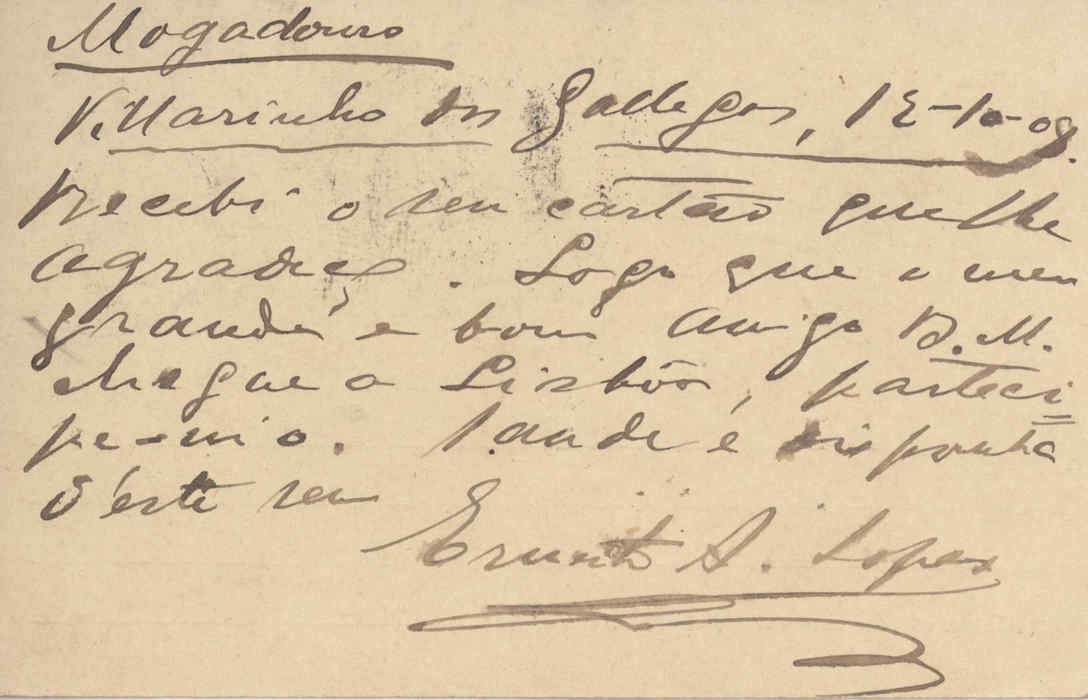 Mogadouro
Villarinho dos Gallegos, 12-10-08.
Recebi o seu cartão que lhe
agradeço. Logo que o meu
grande e bom amigo B. M.
chegue a Lisbôa, parteci=
pe-mio. Saude e disponha
d'este seu
Ernesto A. Lopes